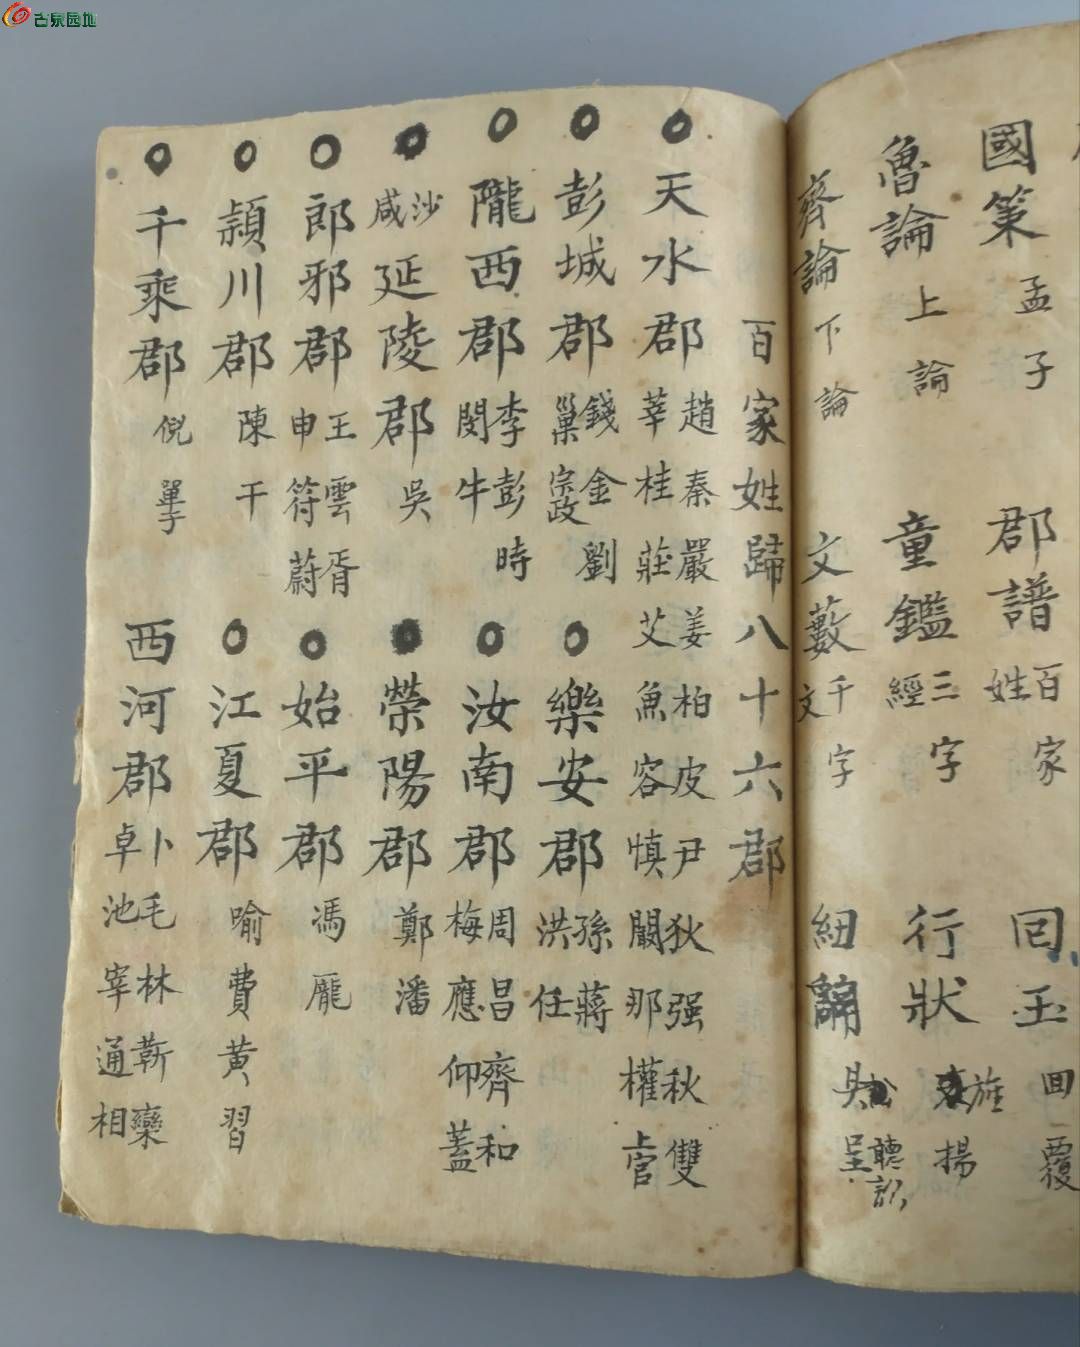 古泉园地
國策 孟子
郡譜 百家姓
回玉 回覆
魯論 上論
童鑑 三字經
行狀 旌揚
齊論 下論
文藪 千字文
細 呈 聽
百家姓歸八十六郡
天水郡 趙秦嚴姜柏皮尹狄强秋雙莘桂莊艾魚容慎闞那權上官
彭城郡 錢金劉巢宗政
樂安郡 孫蔣洪任
隴西郡 李彭時閔牛
汝南郡 周昌齊和梅應仰蓋
沙咸延陵郡 吳
滎陽郡 鄭潘
郎邪郡 王雲胥申符蔚
始平郡 馮龐
潁川郡 陳干
江夏郡 喻費黄習
千乘郡 倪單于
西河郡 卜毛林靳欒卓池宰通相